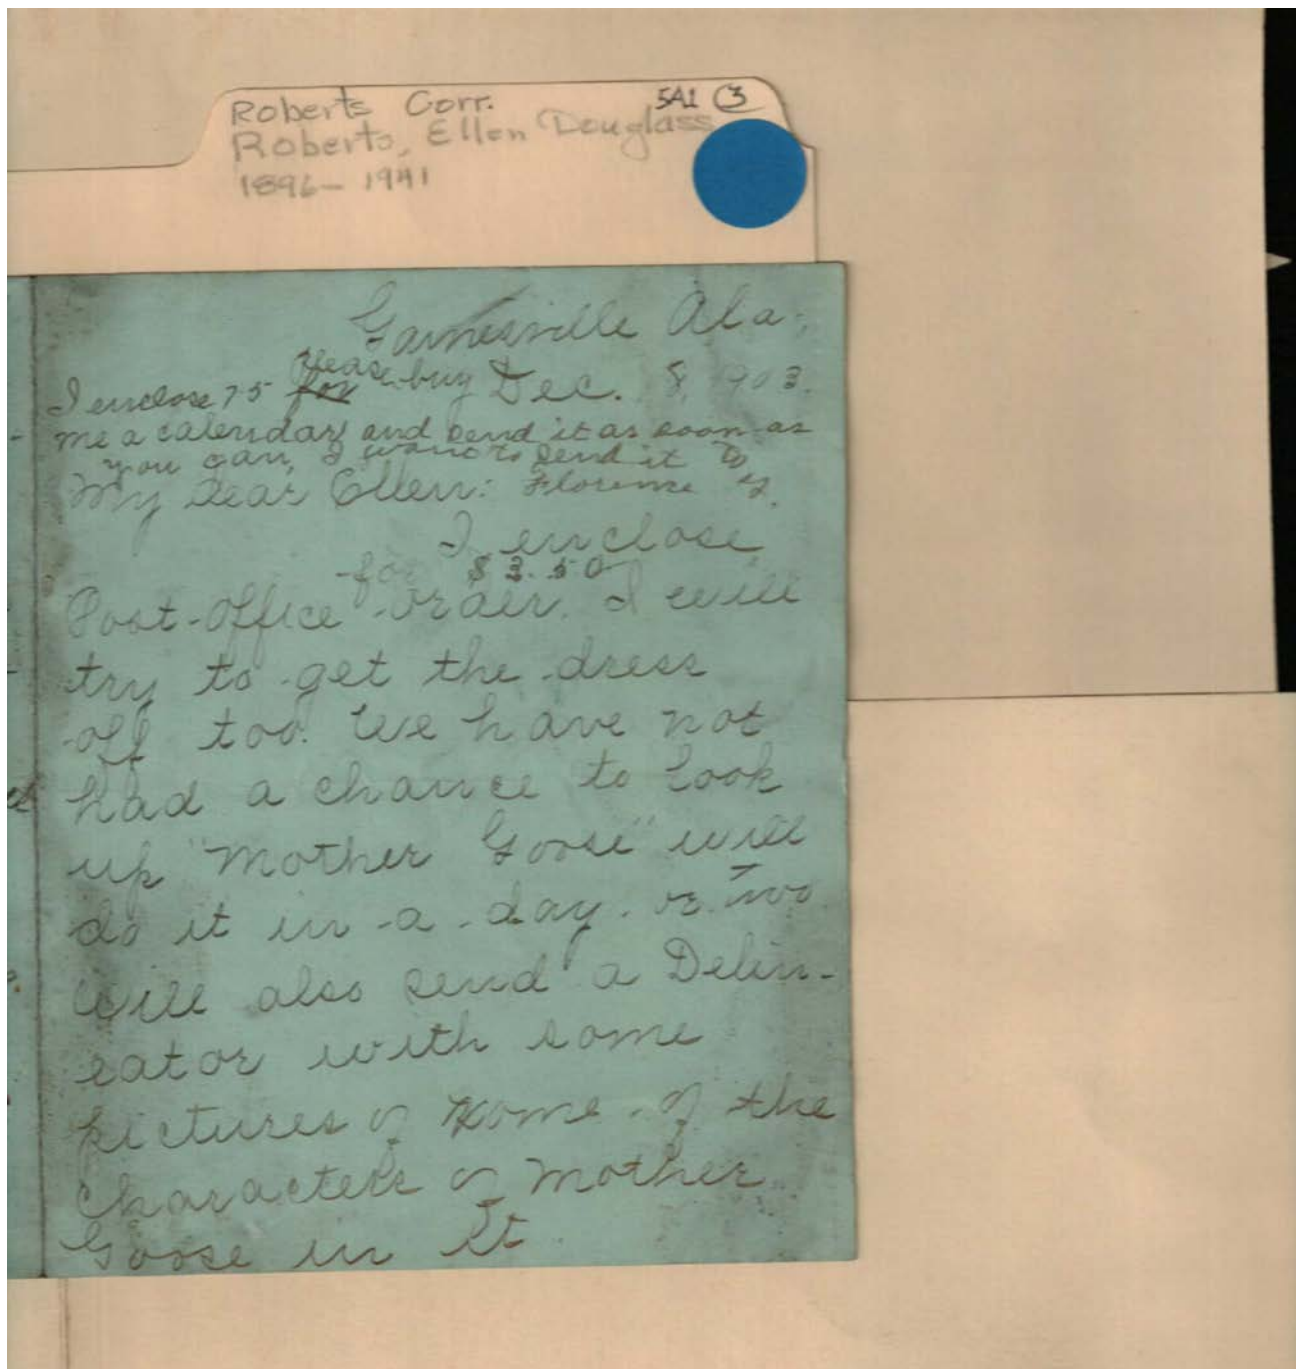 Roberts Corr. 5A1 3
Roberts, Ellen Douglass
1896-1941
Gainesville Ala.
Dec. 8, 1903.
I enclose 75 for please buy
me a calendar and send it as soon as
you can, I want to send it to
Florence Y.
My Dear Ellen:
I enclose
for $3.50
Post-Office order. I will
try to get the dress
off too. We have not
had a chance to look
up "Mother Goose" will
do it in a day or two
will also send a Delin-
eator with some
pictures of some of the
characters of Mother
Goose in it